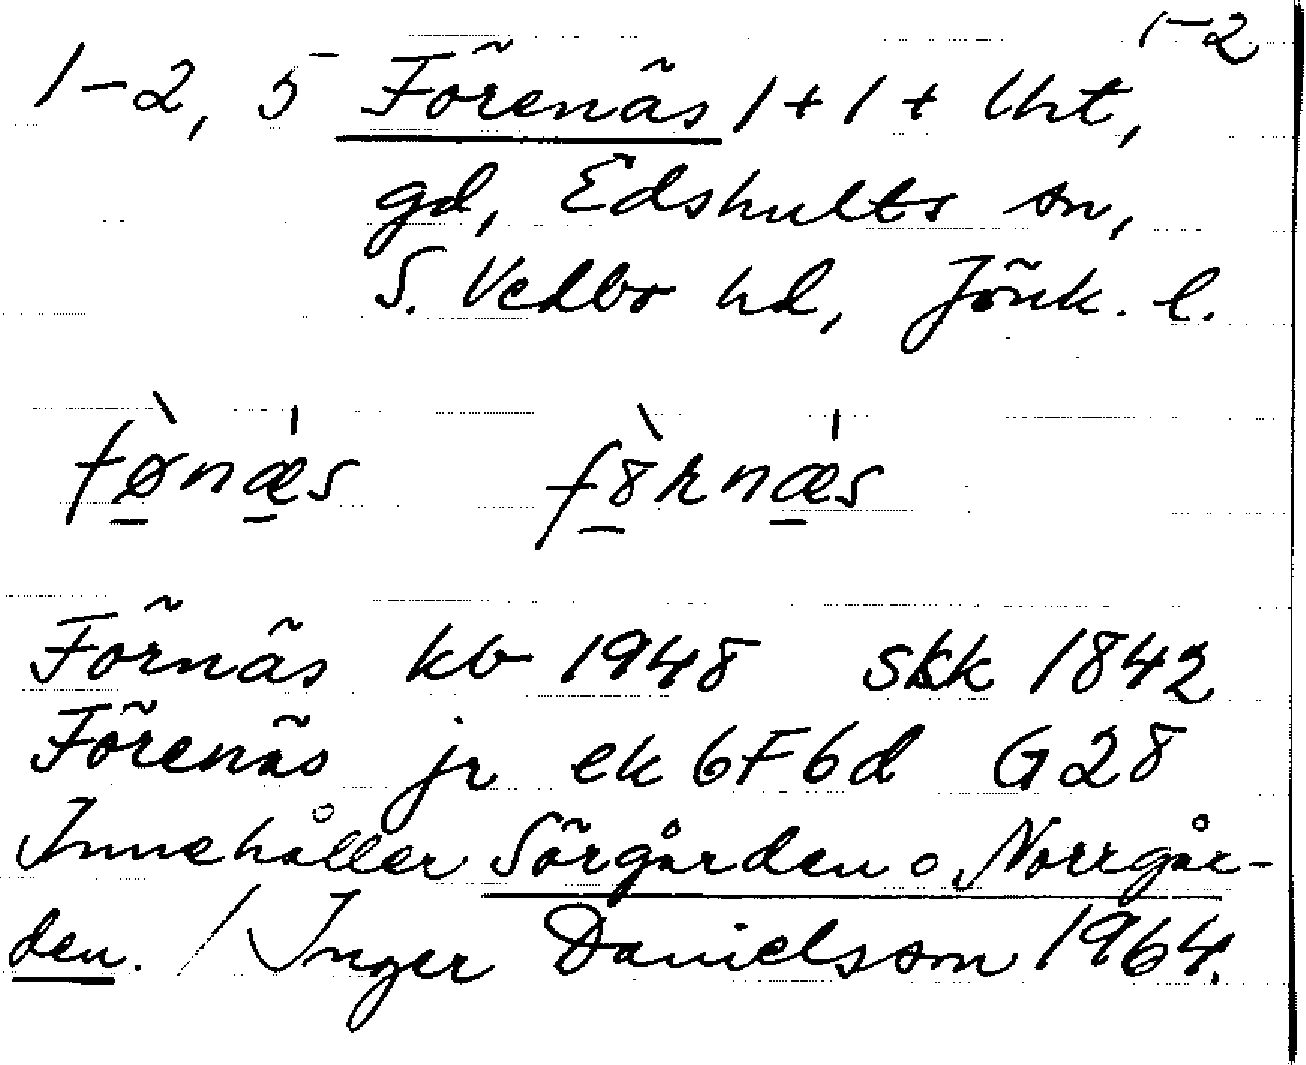 1-2
1-2, 5 Förenäs 1+1+ lht,
gd, Edshults sn,
S. Vedbo hd, Jönk. l.
fø̀næ̍s fö̀rnæ̍s
Förnäs kb 1948 skk 1842
Förenäs jr ek 6F6d G28
Innehåller Sörgården o Norrgår-
den. / Inger Danielsson 1964.